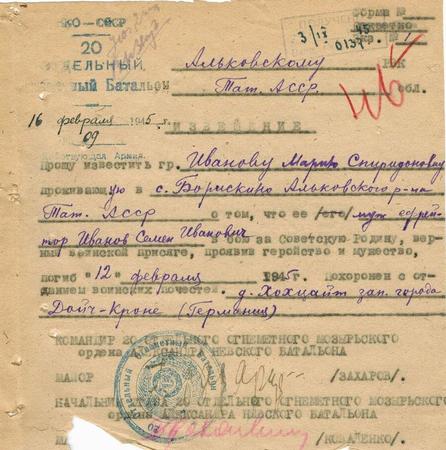 НКО-СССР
20
ОТДЕЛЬНЫЙ
Огнеметный Батальон
16 февраля 1945 г.
09
Действующая Армия.
Форма №
Секретно
Экз. № 1
3/IV 45
0137
Альковскому РВК
Тат. АССР обл.
ИЗВЕЩЕНИЕ
Прошу известить гр. Иванову Марию Спиридоновну
проживающую в с. Борискино Альковского р-на
Тат. АССР о том, что ее /его/ муж ефрей-
тор Иванов Семен Иванович
в бою за Советскую Родину, верный воинской присяге, проявив геройство и мужество,
погиб "12" февраля 1945г. Похоронен с от-
данием воинских почестей д. Хохцайт зап. города
Дойч-Кроне (Германия)
КОМАНДИР 20 ОТДЕЛЬНОГО ОГНЕМЕТНОГО МОЗЫРЬСКОГО
ордена АЛЕКСАНДРА НЕВСКОГО БАТАЛЬОНА
МАЙОР /ЗАХАРОВ/.
НАЧАЛЬНИК ШТАБА 20 ОТДЕЛЬНОГО ОГНЕМЕТНОГО МОЗЫРЬСКОГО
ордена АЛЕКСАНДРА НЕВСКОГО БАТАЛЬОНА
/КОВАЛЕНКО/.